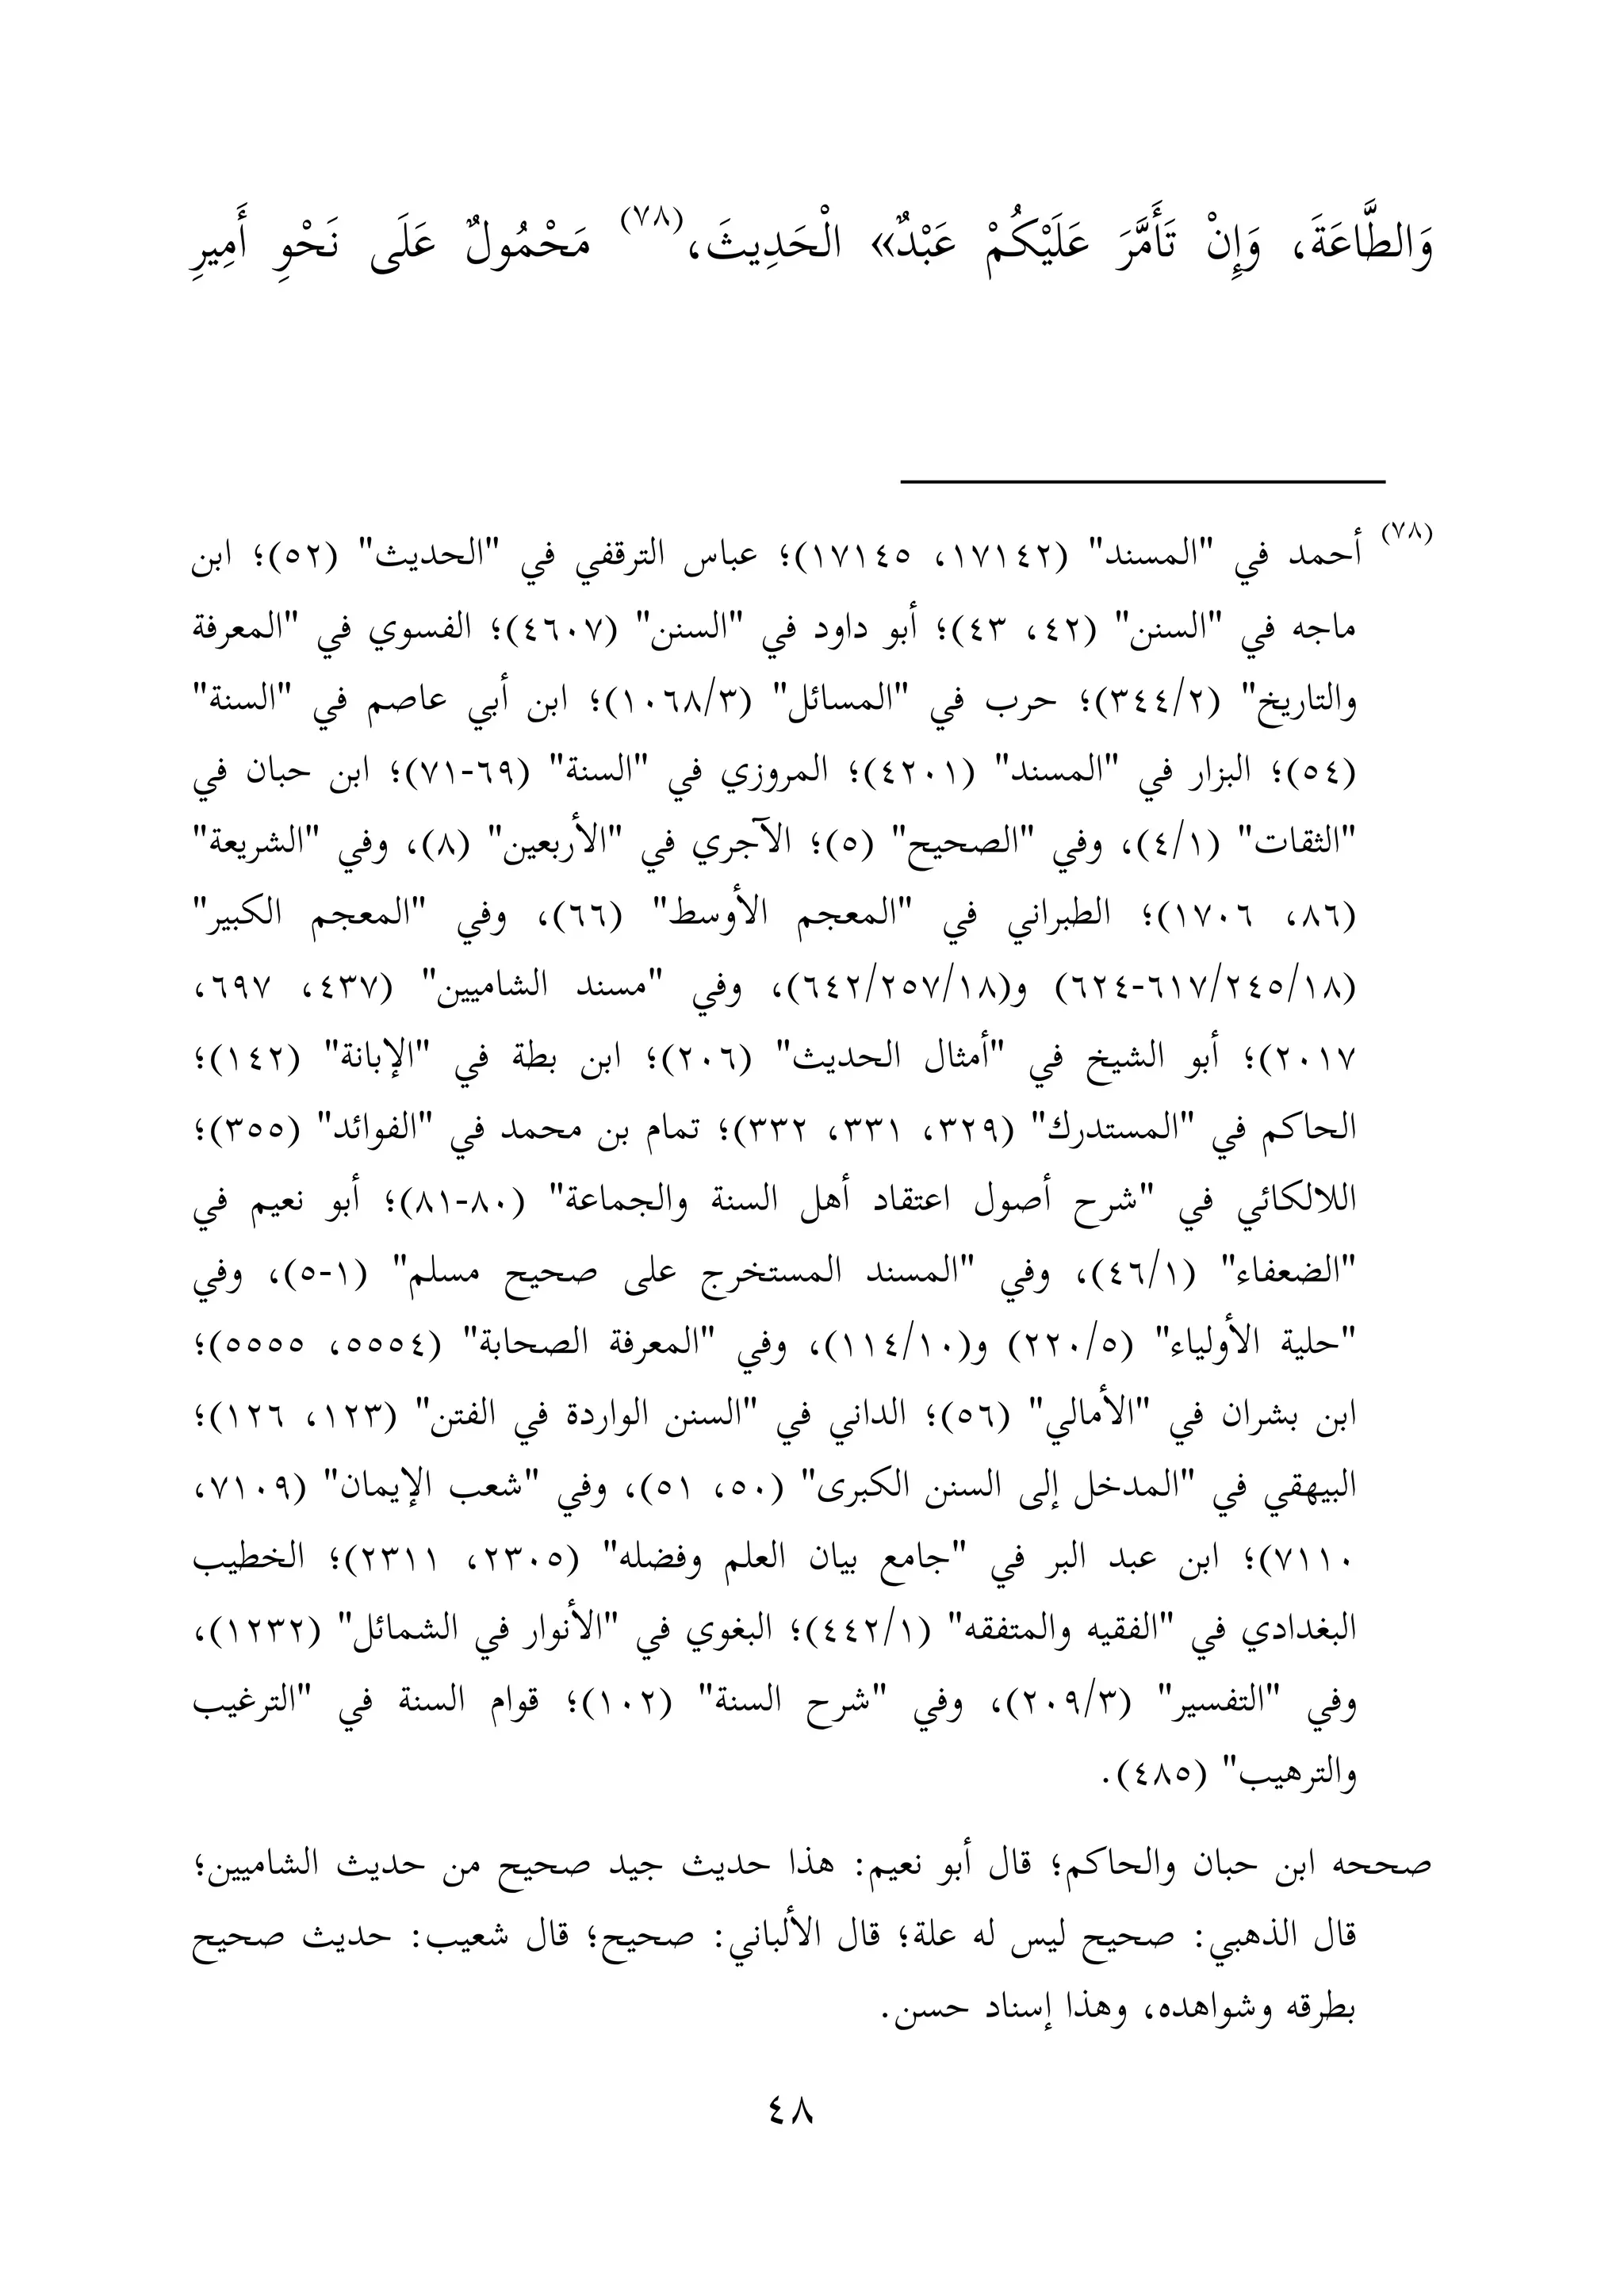 وَالطَّاعَةَ، وَإِنْ تَأَمَّرَ عَلَيْكُمْ عَبْدٌ» الْحَدِيثَ،(٧٨) مَحْمُولٌ عَلَى نَحْوِ أَمِيرِ
(٧٨) أحمد في "المسند" (١٧١٤٢، ١٧١٤٥)؛ عباس الترقفي في "الحديث" (٥٢)؛ ابن
ماجه في "السنن" (٤٢، ٤٣)؛ أبو داود في "السنن" (٤٦٠٧)؛ الفسوي في "المعرفة
والتاريخ" (٣٤٤/٢)؛ حرب في "المسائل" (١٠٦٨/٣)؛ ابن أبي عاصم في "السنة"
(٥٤)؛ البزار في "المسند" (٤٢٠١)؛ المروزي في "السنة" (٦٩-٧١)؛ ابن حبان في
"الثقات" (٤/١)، وفي "الصحيح" (٥)؛ الآجري في "الأربعين" (٨)، وفي "الشريعة"
(٨٦، ١٧٠٦)؛ الطبراني في "المعجم الأوسط" (٦٦)، وفي "المعجم الكبير"
(٦١٧/٢٤٥/١٨-٦٢٤) و(٦٤٢/٢٥٧/١٨)، وفي "مسند الشاميين" (٤٣٧، ٦٩٧،
٢٠١٧)؛ أبو الشيخ في "أمثال الحديث" (٢٠٦)؛ ابن بطة في "الإبانة" (١٤٢)؛
الحاكم في "المستدرك" (٣٢٩، ٣٣١، ٣٣٢)؛ تمام بن محمد في "الفوائد" (٣٥٥)؛
اللالكائي في "شرح أصول اعتقاد أهل السنة والجماعة" (٨٠-٨١)؛ أبو نعيم في
"الضعفاء" (٤٦/١)، وفي "المسند المستخرج على صحيح مسلم" (١-٥)، وفي
"حلية الأولياء" (٢٢٠/٥) و(١١٤/١٠)، وفي "المعرفة الصحابة" (٥٥٥٤، ٥٥٥٥)؛
ابن بشران في "الأمالي" (٥٦)؛ الداني في "السنن الواردة في الفتن" (١٢٣، ١٢٦)؛
البيهقي في "المدخل إلى السنن الكبرى" (٥٠، ٥١)، وفي "شعب الإيمان" (٧١٠٩،
٧١١٠)؛ ابن عبد البر في "جامع بيان العلم وفضله" (٢٣٠٥، ٢٣١١)؛ الخطيب
البغدادي في "الفقيه والمتفقه" (٤٤٢/١)؛ البغوي في "الأنوار في الشمائل" (١٢٣٢)،
وفي "التفسير" (٢٠٩/٣)، وفي "شرح السنة" (١٠٢)؛ قوام السنة في "الترغيب
والترهيب" (٤٨٥).
صححه ابن حبان والحاكم؛ قال أبو نعيم: هذا حديث جيد صحيح من حديث الشاميين؛
قال الذهبي: صحيح ليس له علة؛ قال الألباني: صحيح؛ قال شعيب: حديث صحيح
بطرقه وشواهده، وهذا إسناد حسن.
٤٨